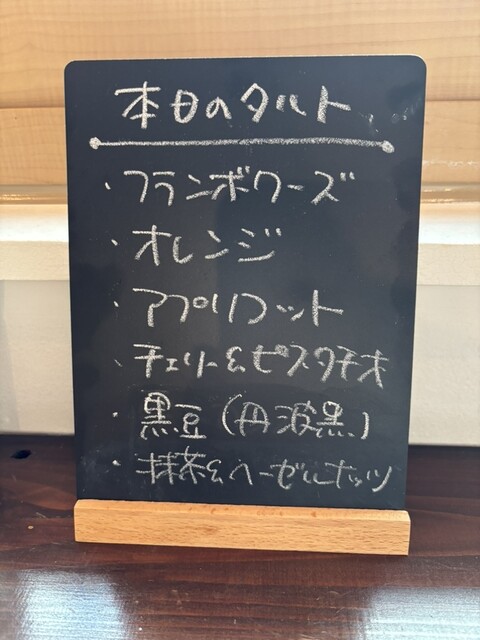 本日のタルト
・フランボワーズ
・オレンジ
・アプリコット
・チェリー&ピスタチオ
・黒豆(丹波黒)
・抹茶&ヘーゼルナッツ